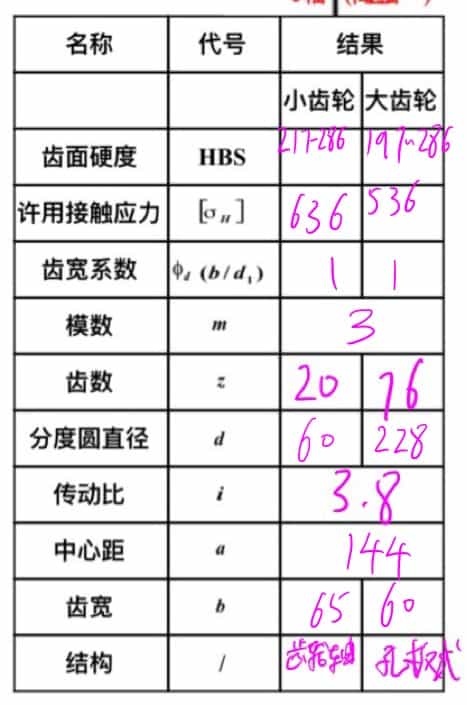 名称 代号 结果
小齿轮 大齿轮
齿面硬度 HBS 217-286 197~286
许用接触应力 [σH] 636 536
齿宽系数 ϕd (b/d1) 1 1
模数 m 3
齿数 z 20 76
分度圆直径 d 60 228
传动比 i 3.8
中心距 a 144
齿宽 b 65 60
结构 / 齿轮轴 孔板式